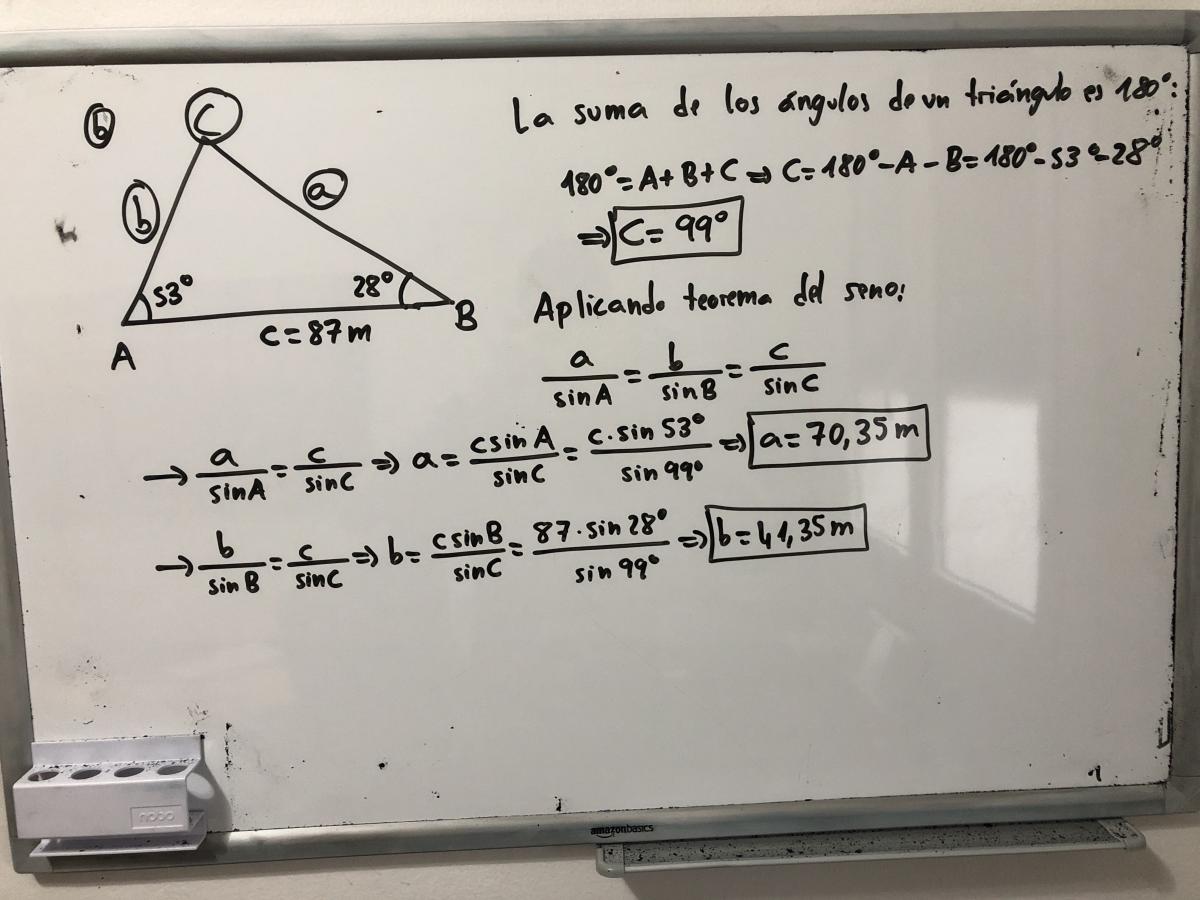 b
C
b
a
53°
28°
A
B
c = 87 m
La suma de los ángulos de un triángulo es 180°:
180° = A + B + C ⇒ C = 180° - A - B = 180° - 53° - 28°
⇒ C = 99°
Aplicando teorema del seno:
a/sin A = b/sin B = c/sin C
→ a/sin A = c/sin C ⇒ a = c sin A/sin C = c · sin 53°/sin 99° ⇒ a = 70,35 m
→ b/sin B = c/sin C ⇒ b = c sin B/sin C = 87 · sin 28°/sin 99° ⇒ b = 41,35 m
nobo
amazonbasics